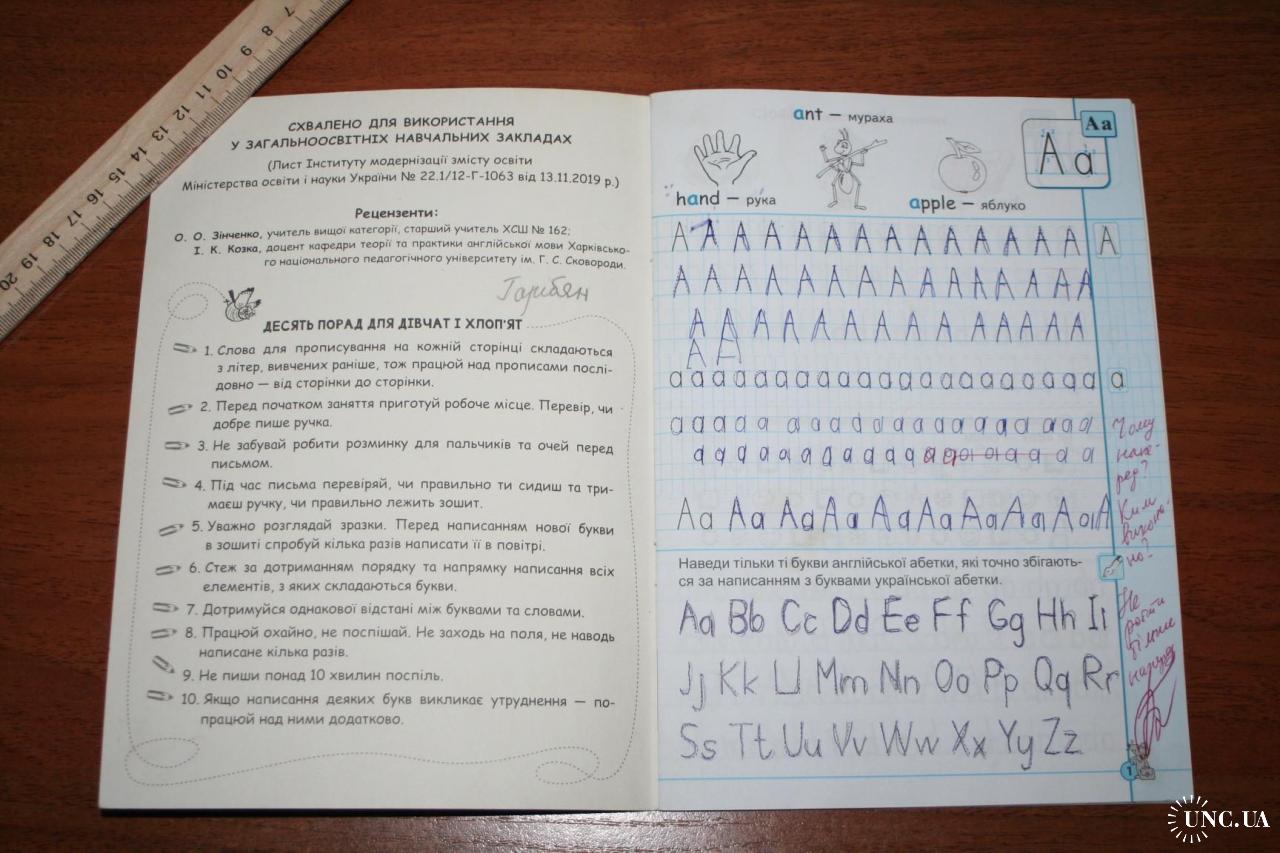 7 8 9 10 11 12 13 14 15 16 17 18 19 20
СХВАЛЕНО ДЛЯ ВИКОРИСТАННЯ
У ЗАГАЛЬНООСВІТНІХ НАВЧАЛЬНИХ ЗАКЛАДАХ
(Лист Інституту модернізації змісту освіти
Міністерства освіти і науки України № 22.1/12-Г-1063 від 13.11.2019 р.)
Рецензенти:
О. О. Зінченко, учитель вищої категорії, старший учитель ХСШ № 162;
І. К. Козка, доцент кафедри теорії та практики англійської мови Харківсько-
го національного педагогічного університету ім. Г. С. Сковороди.
Гарибян
ДЕСЯТЬ ПОРАД ДЛЯ ДІВЧАТ І ХЛОП'ЯТ
1. Слова для прописування на кожній сторінці складаються
з літер, вивчених раніше, тож працюй над прописами послі-
довно — від сторінки до сторінки.
2. Перед початком заняття приготуй робоче місце. Перевір, чи
добре пише ручка.
3. Не забувай робити розминку для пальчиків та очей перед
письмом.
4. Під час письма перевіряй, чи правильно ти сидиш та три-
маєш ручку, чи правильно лежить зошит.
5. Уважно розглядай зразки. Перед написанням нової букви
в зошиті спробуй кілька разів написати її в повітрі.
6. Стеж за дотриманням порядку та напрямку написання всіх
елементів, з яких складаються букви.
7. Дотримуйся однакової відстані між буквами та словами.
8. Працюй охайно, не поспішай. Не заходь на поля, не наводь
написане кілька разів.
9. Не пиши понад 10 хвилин поспіль.
10. Якщо написання деяких букв викликає утруднення — по-
працюй над ними додатково.
ant — мураха
Aa
A a
hand — рука
apple — яблуко
A A A A A A A A A A A A A A A
A A A A A A A A A A A A A A A
A A A A A A A A A A A A A
A A
a a a a a a a a a a a a a a a a a a a a a
a a a a a a a a a a a a a a a a a a a
a a a a a a a a a a a a a a a a
Aa Aa Aa Aa Aa Aa Aa Aa Aa A
Чому
напе-
ред?
Ким
викона-
но?
Не
робити
більше
наперед
Наведи тільки ті букви англійської абетки, які точно збігають-
ся за написанням з буквами української абетки.
Aa Bb Cc Dd Ee Ff Gg Hh Ii
Jj Kk Ll Mm Nn Oo Pp Qq Rr
Ss Tt Uu Vv Ww Xx Yy Zz
1
UNC.UA